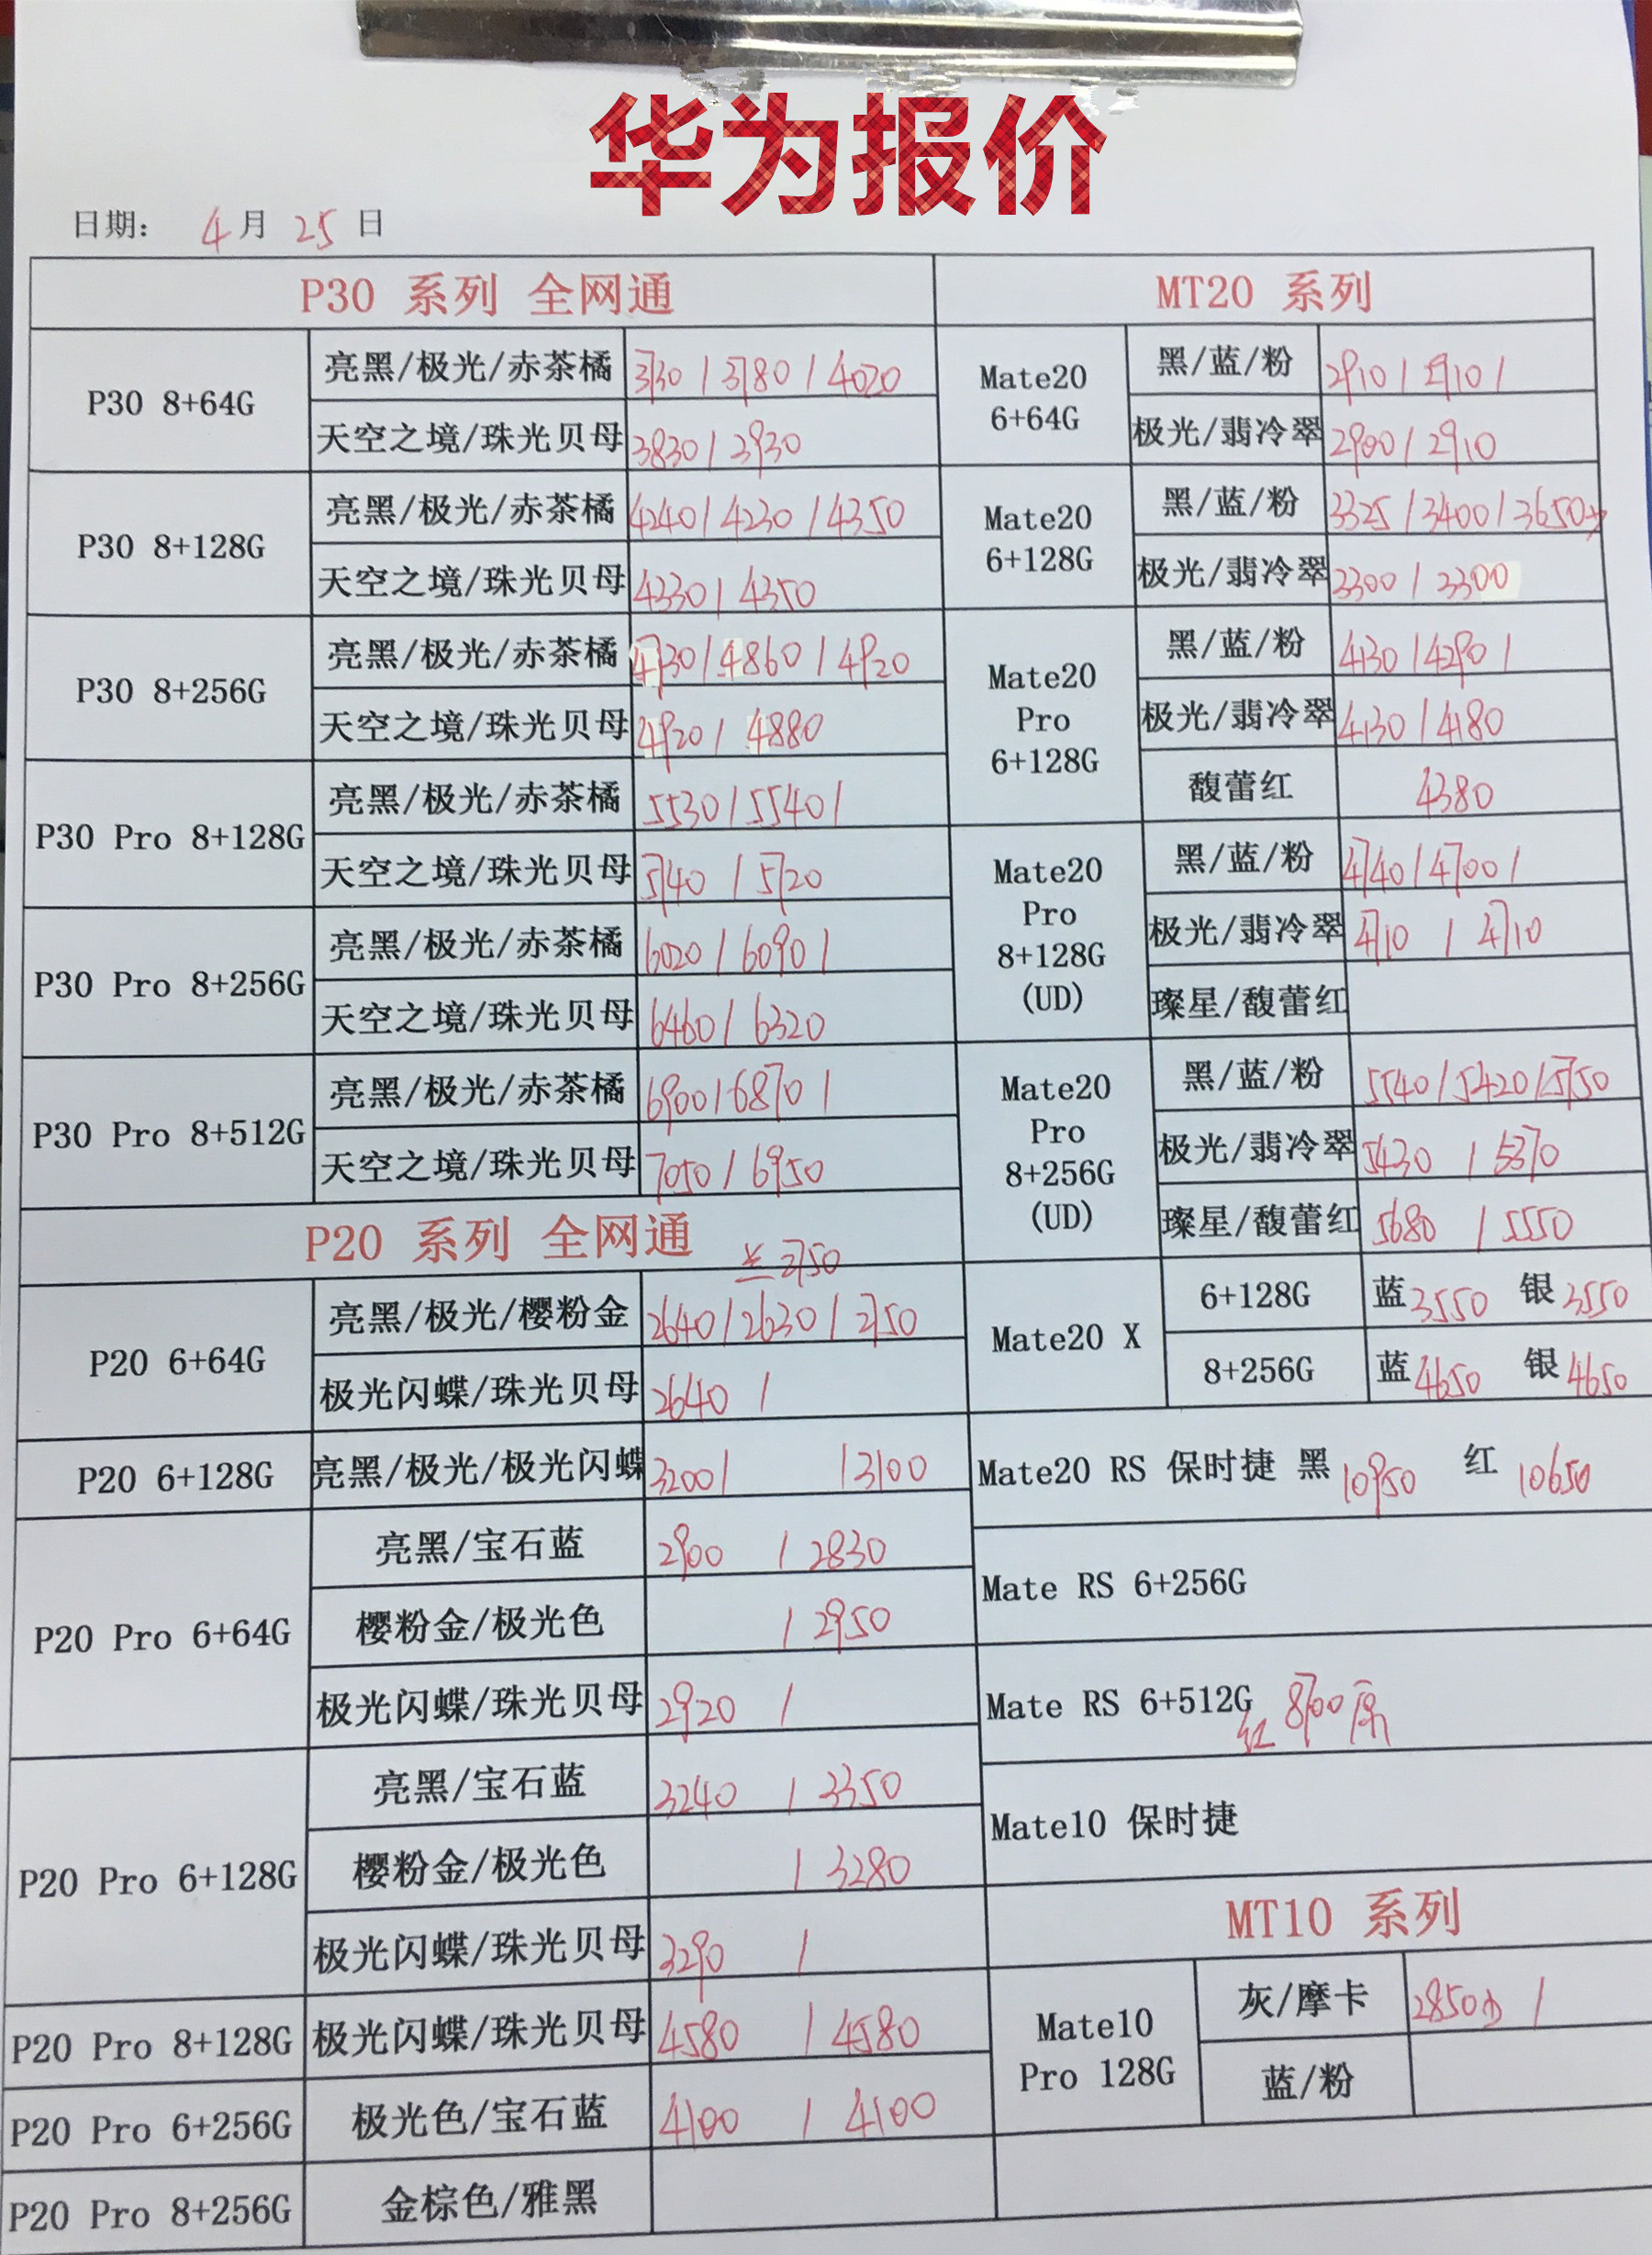 华为报价
日期： 4月 25 日
P30 系列 全网通
P30 8+64G
亮黑/极光/赤茶橘 3730 / 3780 / 4020
天空之境/珠光贝母 3830 / 3930
P30 8+128G
亮黑/极光/赤茶橘 4240 / 4230 / 4350
天空之境/珠光贝母 4330 / 4350
P30 8+256G
亮黑/极光/赤茶橘 4730 / 4860 / 4920
天空之境/珠光贝母 4920 / 4880
P30 Pro 8+128G
亮黑/极光/赤茶橘 5530 / 5540 /
天空之境/珠光贝母 5740 / 5720
P30 Pro 8+256G
亮黑/极光/赤茶橘 6020 / 6090 /
天空之境/珠光贝母 6460 / 6320
P30 Pro 8+512G
亮黑/极光/赤茶橘 6900 / 6870 /
天空之境/珠光贝母 7050 / 6950
P20 系列 全网通
2750
P20 6+64G
亮黑/极光/樱粉金 2640 / 2630 / 2750
极光闪蝶/珠光贝母 2640 /
P20 6+128G
亮黑/极光/极光闪蝶 3200 / / 3100
P20 Pro 6+64G
亮黑/宝石蓝 2900 / 2830
樱粉金/极光色 / 2950
极光闪蝶/珠光贝母 2920 /
P20 Pro 6+128G
亮黑/宝石蓝 3240 / 3350
樱粉金/极光色 / 3280
极光闪蝶/珠光贝母 3290 /
P20 Pro 8+128G
极光闪蝶/珠光贝母 4580 / 4580
P20 Pro 6+256G
极光色/宝石蓝 4100 / 4100
P20 Pro 8+256G
金棕色/雅黑
MT20 系列
Mate20
6+64G
黑/蓝/粉 2910 / 2910 /
极光/翡冷翠 2900 / 2910
Mate20
6+128G
黑/蓝/粉 3325 / 3400 / 3650
极光/翡冷翠 3300 / 3300
Mate20
Pro
6+128G
黑/蓝/粉 4130 / 4290 /
极光/翡冷翠 4130 / 4180
馥蕾红 4380
Mate20
Pro
8+128G
(UD)
黑/蓝/粉 4740 / 4700 /
极光/翡冷翠 4710 / 4710
璨星/馥蕾红
Mate20
Pro
8+256G
(UD)
黑/蓝/粉 5540 / 5420 / 5750
极光/翡冷翠 5430 / 5370
璨星/馥蕾红 5680 / 5550
Mate20 X
6+128G 蓝 3550 银 3550
8+256G 蓝 4650 银 4650
Mate20 RS 保时捷 黑 10950 红 10650
Mate RS 6+256G
Mate RS 6+512G 红 8700 原
Mate10 保时捷
MT10 系列
Mate10
Pro 128G
灰/摩卡 2850 /
蓝/粉